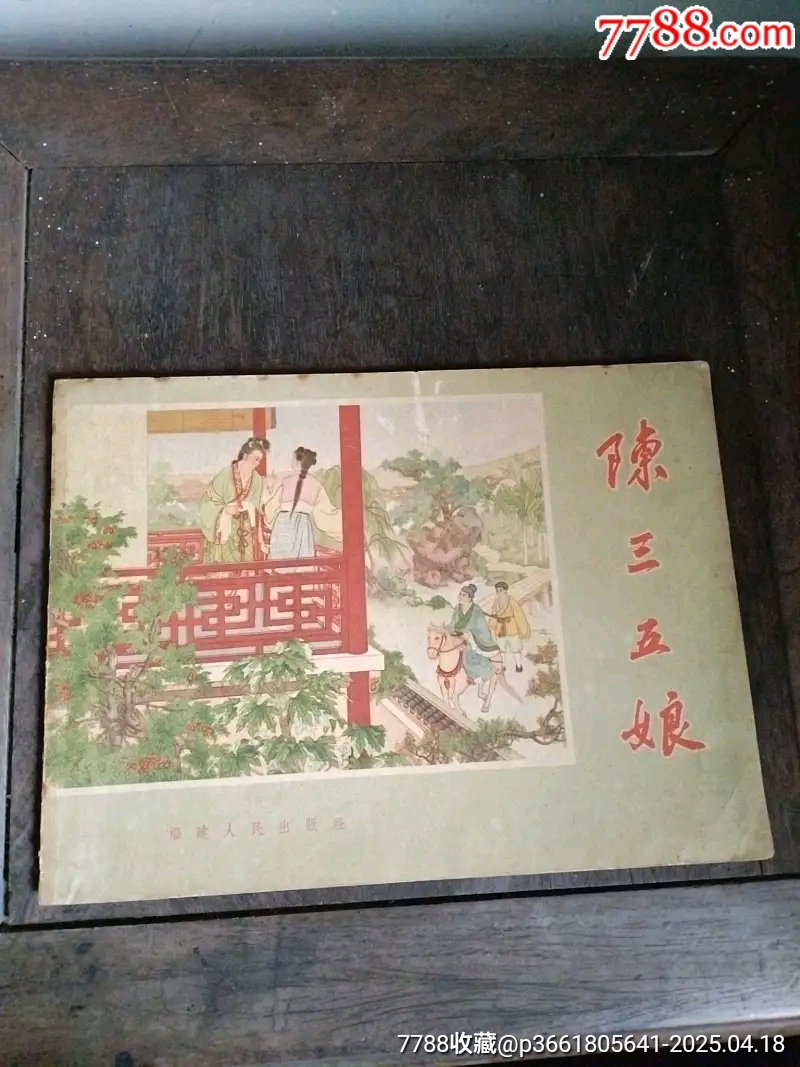 7788.com
陳三五娘
福建人民出版社
7788收藏@p3661805641-2025.04.18